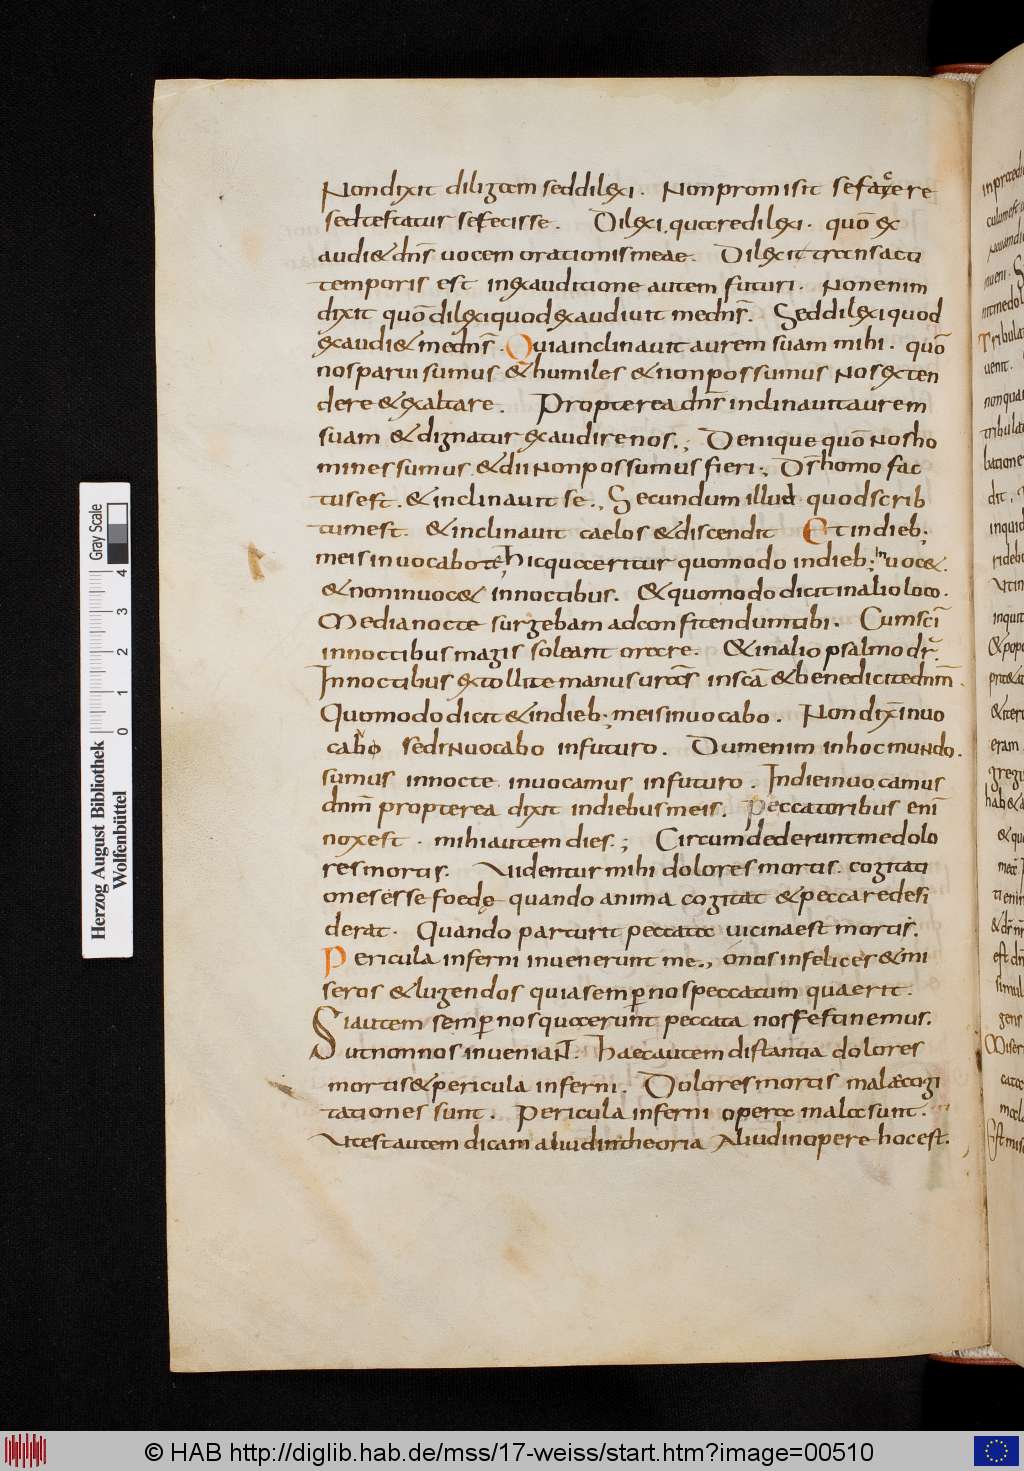 Non dixit diligam sed dilexi. Non promisit se facere
sed testatur se fecisse. Dilexi, quare dilexi. quō ex
audi& dn̄s vocem orationis meae. Dilexit transacti
temporis est in exauditione autem futuri. Non enim
dixit quō dilexi quod exaudivit me dn̄s. Sed dilexi quod
exaudi& me dn̄s. Quia inclinavit aurem suam mihi. quō
nos parvi sumus & humiles & non possumus nos exten
dere & exaltare. Propterea dn̄s inclinavit aurem
suam & dignatur exaudire nos.; Denique quō nos ho
mines sumus & dii non possumus fieri., Ds̄ homo fac
tus est. & inclinavit se., Secundum illud quod scrib
tum est. & inclinavit caelos & discendit Et in dieb;
meis invocabo te, hic quaeritur quomodo in dieb; invoc&.
& non invoc& in noctibus. & quomodo dicit in alio loco.
Media nocte surgebam ad confitendum tibi. Cum scī
in noctibus magis soleant orare. & in alio psalmo dr̄.
In noctibus extollite manus vras̄ in scā & benedicite dnm̄.
Quomodo dicit & in dieb; meis invocabo. Non dix̄ invo
cabo sed invocabo in futuro. Dum enim in hoc mundo.
sumus in nocte invocamus in futuro. In die invocamus
dnm̄ propterea dixit in diebus meis. Peccatoribus enī
nox est. mihi autem dies.; Circumdederunt me dolo
res mortis. Videntur mihi dolores mortis. cogitati
ones esse foedę quando anima cogitat & peccare desi
derat. Quando parturit peccata vicina est mortis.
Pericula inferni invenerunt me., o nos infelices & mi
seros & lugendos quia semp̄ nos peccatum quaerit.
Si autem semp̄ nos quaerunt peccata nos festinemus.
ut non nos inveniant. haec autem distantia dolores
mortis & pericula inferni. Dolores mortis malae cogi
tationes sunt. Pericula inferni opera mala sunt.
Ut est autem dicam aliud in theoria Aliud in opere hoc est.
Herzog August Bibliothek
Wolfenbüttel
0 1 2 3 4
Gray Scale
© HAB http://diglib.hab.de/mss/17-weiss/start.htm?image=00510